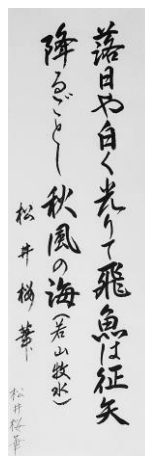 落日や白く光りて飛魚は征矢
降るごとし秋風の海(若山牧水)
松井桜華
松井桜華